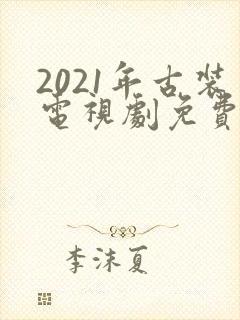 2021年古装
電視劇免費
李沫夏